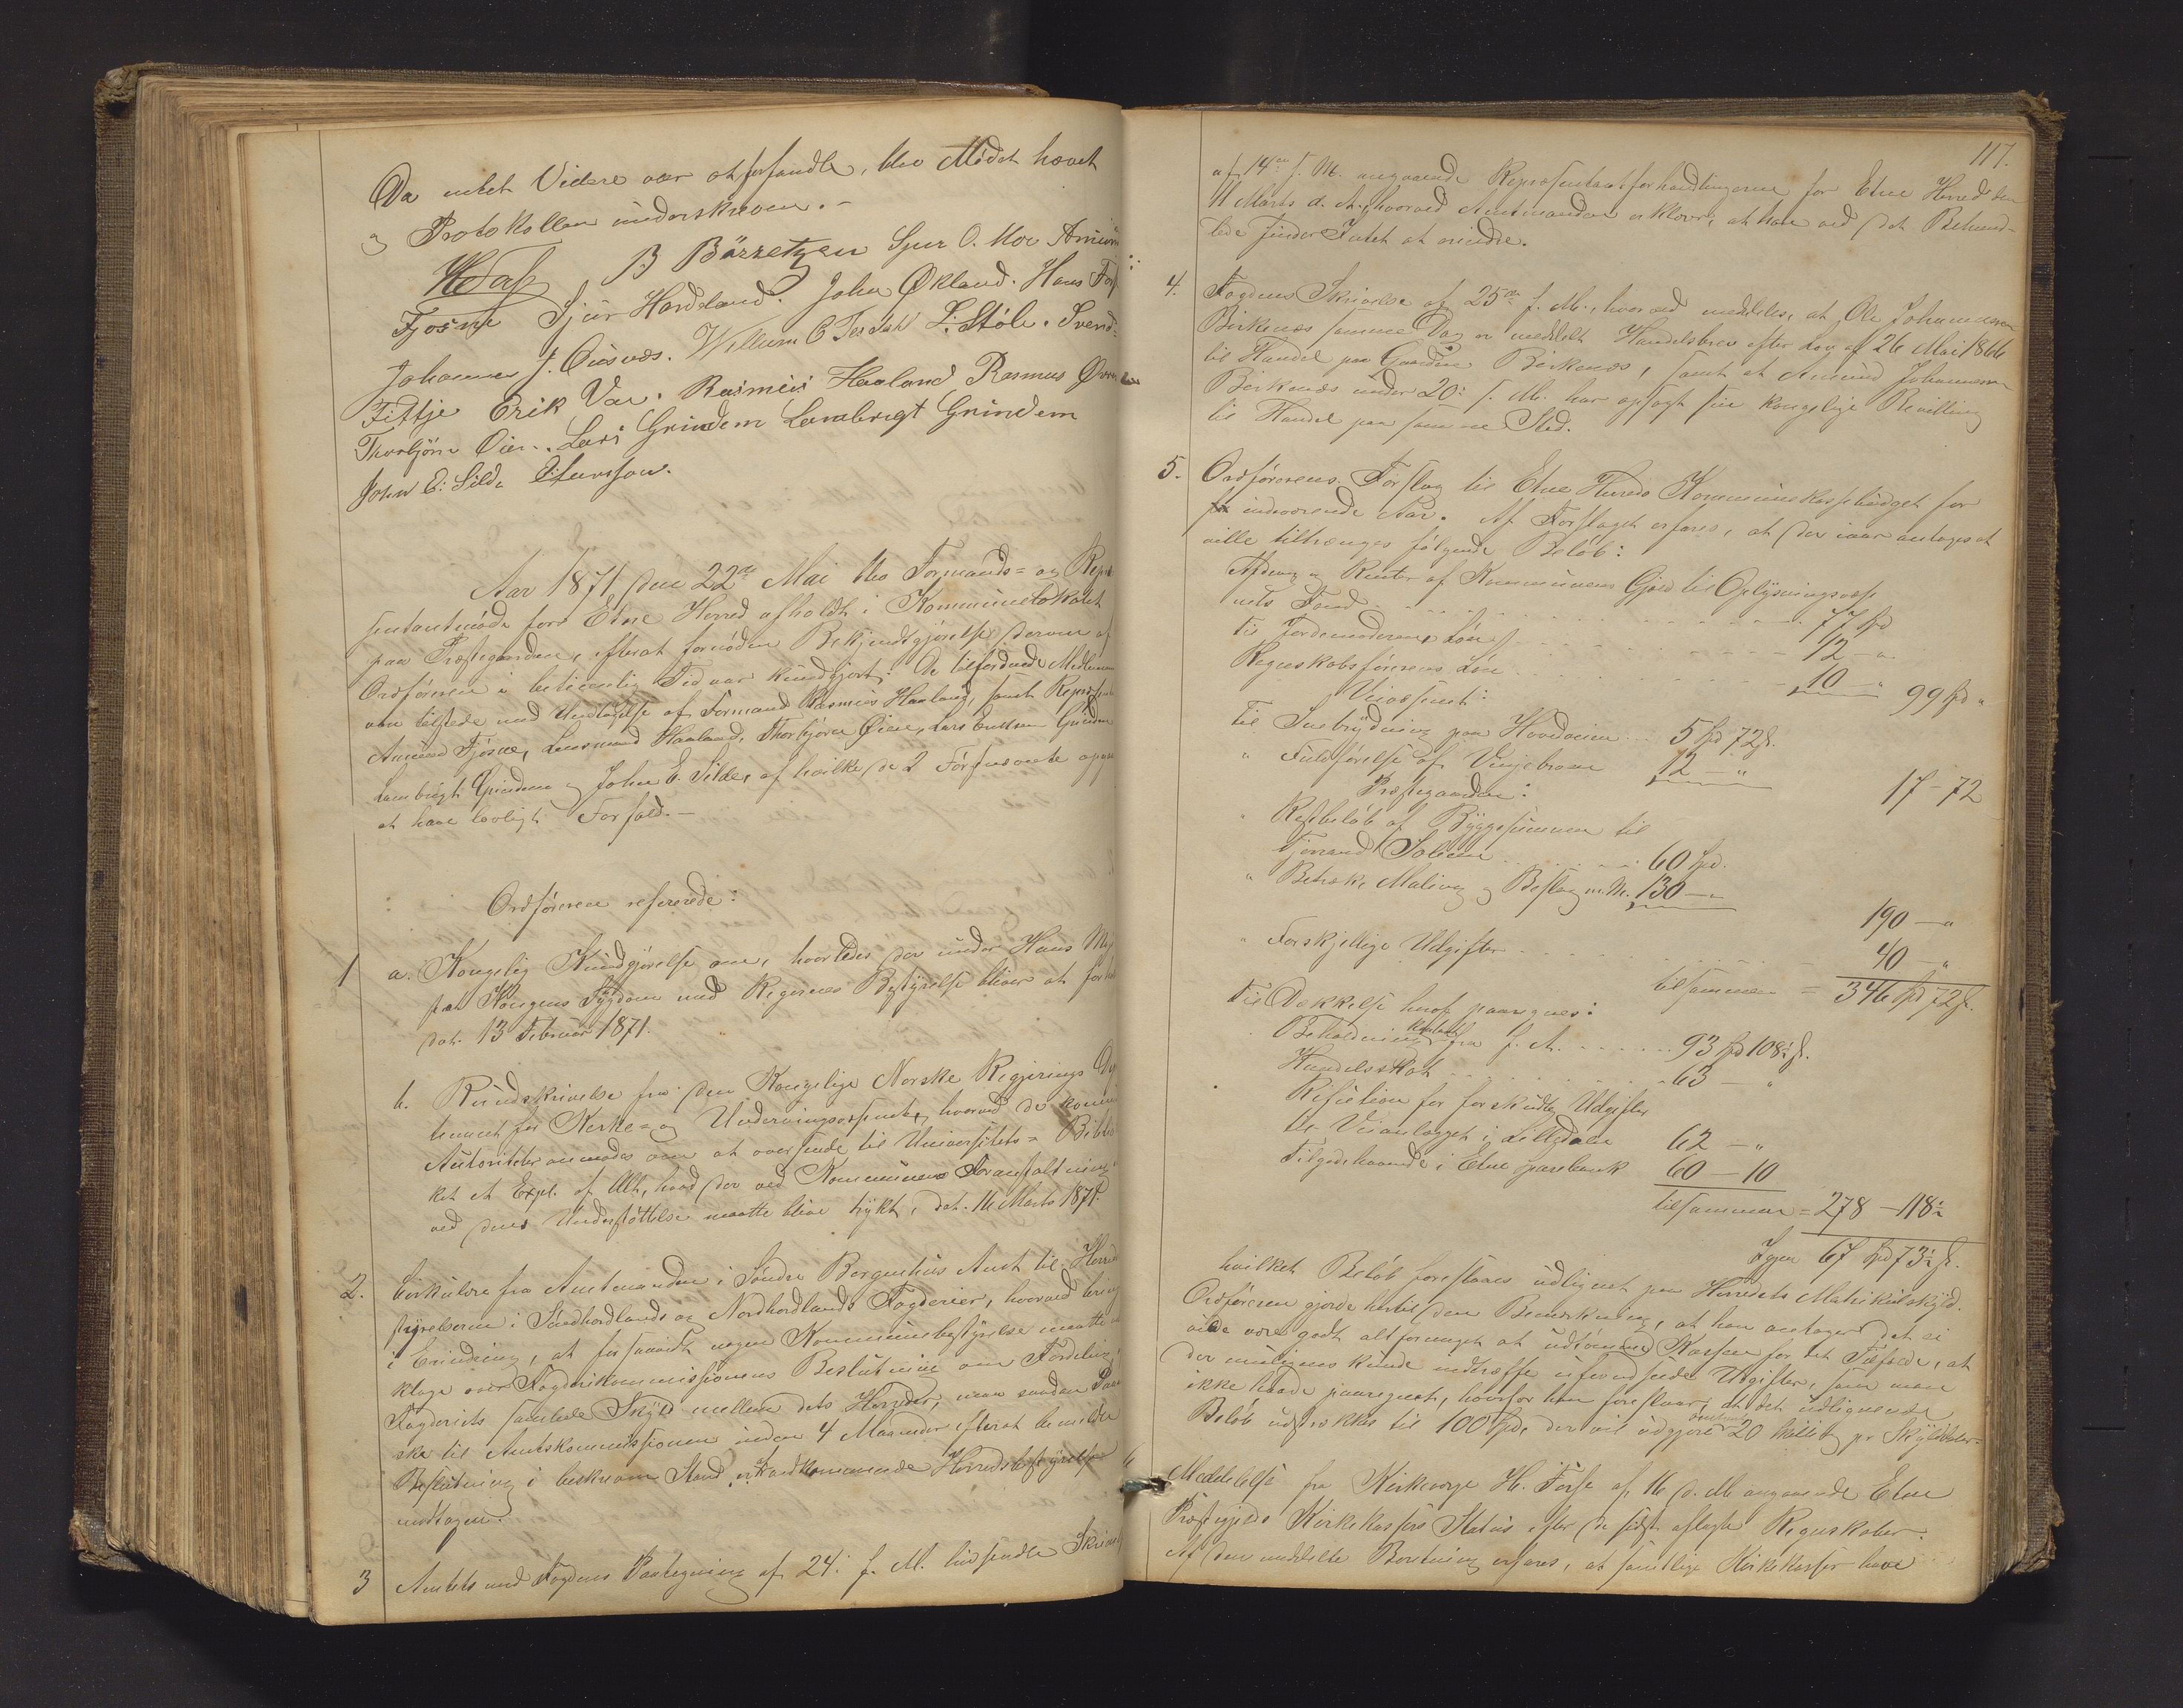 Da intet Videre var at forhandle, blev Mødet hævet
og Protokollen underskreven.-
B Børretzen Sjur O. Moe Amund
Fjøsne Sjur Hardeland. John Økland. Hans
Johannes J. Tesdal L. Støle. Svend
Fittje Erik Vae. Rasmus Haaland Rasmus
Thorbjørn Øien. Lars Grindem Lambregt Grindem
John E: Silde
Aar 1871 den 22de Mai blev Formands- og Repræ
sentantmøde for Etne Herred afholdt i Kommunelokalet
paa Præstegaarden, efterat fornøden Bekjendtgjørelse derom af
Ordføreren i betimelig Tid var kundgjort. De tilforordnede Medlemmer
vare tilstede med Undtagelse af Formand Rasmus Haaland, samt Repræsent
Amund Fjøsne, Lensmand Haaland, Thorbjørn Øien, Lars Grindem
Lambregt Grindem og John E. Silde, af hvilke de 2 Førstnævnte
at have lovligt Forfald.-
Ordføreren refererede:
1 a. Kongelig Kundgjørelse om, hvorledes der under Hans Maj
stæt Kongens Sygdom med Rigernes Bestyrelse bliver at for
dat. 13 Februar 1871.
b. Rundskrivelse fra den Kongelige Norske Regjerings De
tement for Kirke- og Undervisningsvæsenet, hvorved de kommu
Autoriteter anmodes om at oversende til Universitets- Biblio
ket et Expl. af Alt, hvad der ved Kommunens Foranstaltning
ved dens Understøttelse maatte blive trykt, dat. 16 Marts 1871.
2. Cirkulære fra Amtmanden i Søndre Bergenhus Amt til Herreds
styrelserne i Søndhordlands og Nordhordlands Fogderier, hvorved
i Erindring, at forsaavidt nogen Kommunebestyrelse maatte
klage over Fogderikommissionens Beslutning om Fordeling
Fogderiets samlede Skyld mellem dets Herreder, maa saadan Paa
ske til Amtskommissionen inden 4 Maaneder efterat
Beslutning i bekræftet Stand er vedkommende Herredsbestyrelse
modtagen.
3 Amtets med Fogdens Paategning af 24: f. M. tilsendte Skrivelse
117.
af 14de f. M. angaaende Repræsentantforhandlingerne for Etne Herred den
11 Marts d. A., hvorved Amtmanden erklærer, at han ved det Behand-
lede finder Intet at erindre.
4. Fogdens Skrivelse af 25de f. M., hvorved meddeles, at Ole Johannesen
Birkenæs samme Dag er meddelt Handelsbrev efter Lov af 26 Mai 1866
til Handel paa Gaarden Birkenæs, samt at Amund Johannesen
Birkenæs under 20: f. M. har opsagt sin kongelige Bevilling
til Handel paa samme Sted.
5. Ordførerens Forslag til Etne Herreds Kommunekassebudget for
indeværende Aar. Af Forslaget erfares, at der iaar antages at
ville tiltrænges følgende Beløb:
Afdrag og Renter af Kommunens Gjæld til Oplysningsvæse
nets Fond . . . 77 Spd
Til Jordemoderens Løn . . . 12 - "
Regnskabsførerens Løn . . . 10 - " 99 Spd "
Veivæsenet:
Til Snebrydning paa Hovedveien .. 5 Spd 72 ß.
" Fuldførelse af Vinjebroen 12 - " 17 - 72
Præstegaarden:
" Restbeløb af Byggesummen til
Tømand Solheim . . . 60 Spd.
" Betræk, Maling og Beslag m. M. 130 - " 190 - "
" Forskjellige Udgifter . . . 40 - "
tilsammen = 346 Spd 72 ß.
Til Dækkelse heraf paaregnes:
Beholdning kontant fra f. A. . . . 93 Spd 108½ ß.
Handelsskat . . . 63 - "
Refusion for forskudte Udgifter
til Veianlægget i Litledalen 62 - "
Tilgodehavende i Etne Sparebank 60 - 10
tilsammen = 278 - 118½
Igjen 67 Spd 73½ ß.
hvilket Beløb foreslaaes udlignet paa Herredets Matrikulskyld.
Ordføreren gjorde hertil den Bemærkning, at han antager det ei
vilde være godt altformeget at udtømme Kassen for det Tilfælde, at
der muligens kunde indtræffe uforudseede Udgifter, som man
ikke havde paaregnet, hvorfor han foreslaar, at det udlignende
Beløb udstrækkes til 100 Spd, der vil udgjøre omtrent 20 Skilling pr Skylddaler.
6 Meddelelse fra Kirkeværge H. Førse af 16 d. M. angaaende Etne
Præstegjelds Kirkekassers Status efter de sidst aflagte Regnskaber.
Af den meddelte Beretning erfares, at samtlige Kirkekasser have